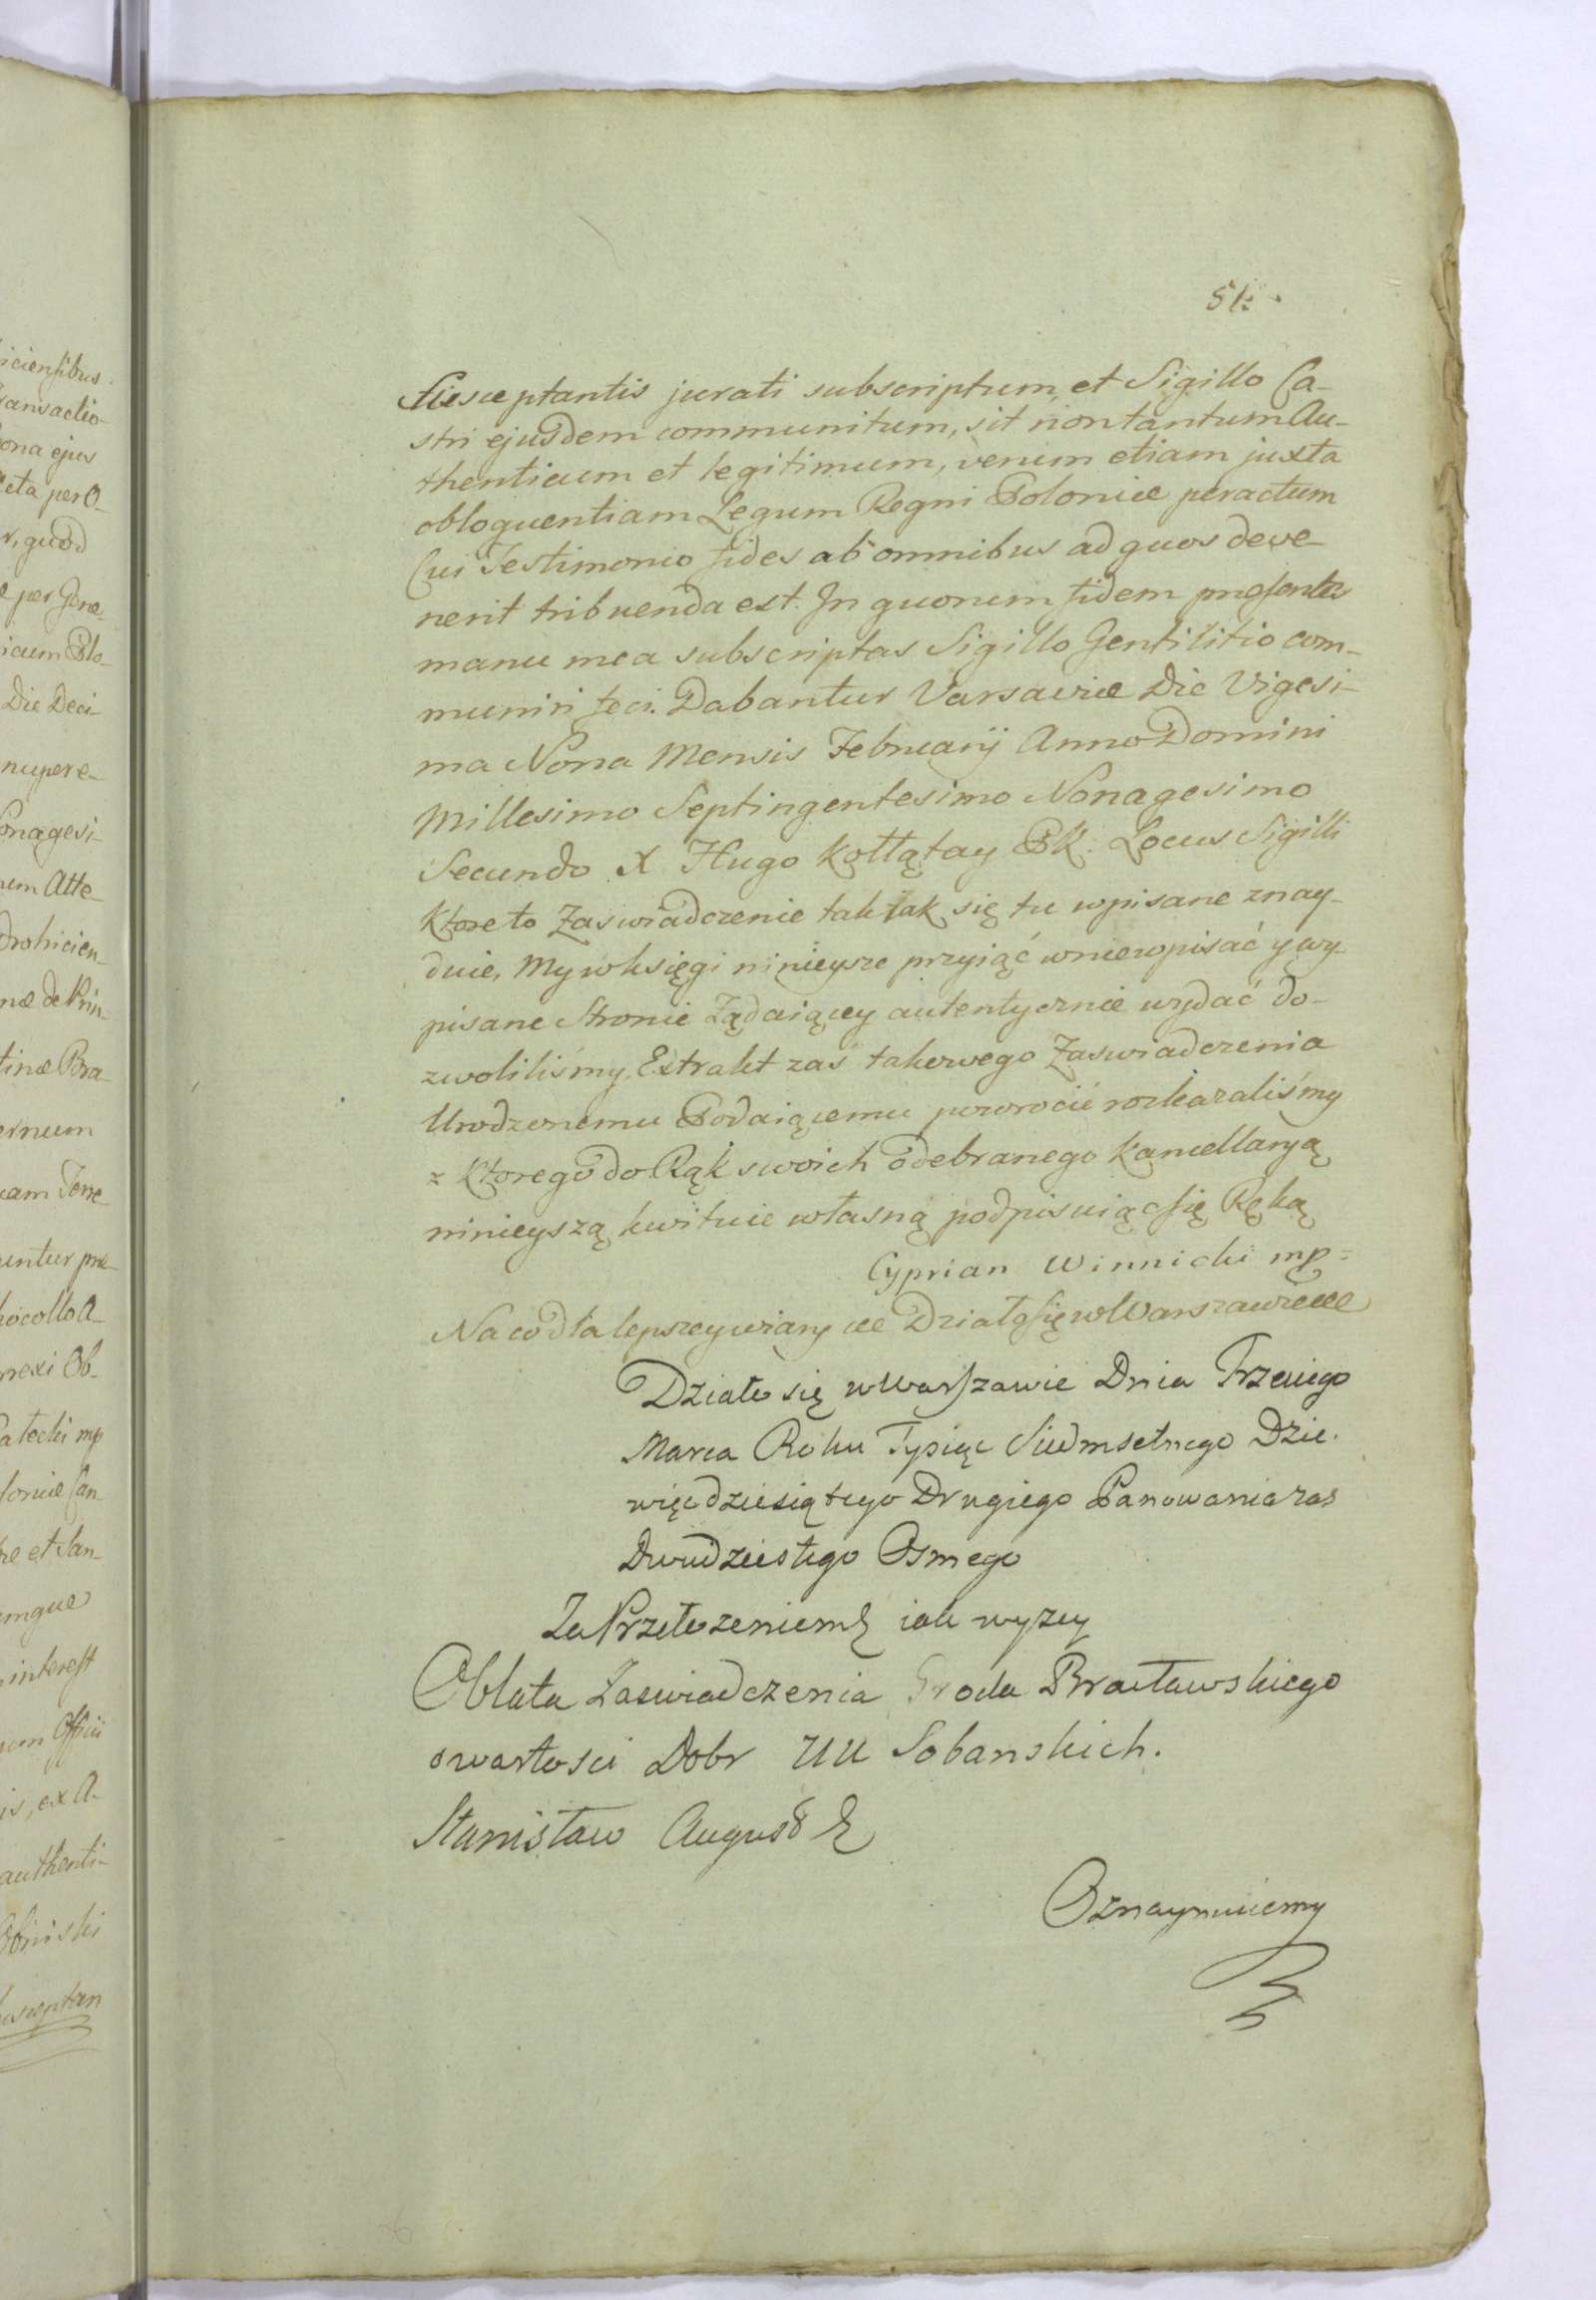 iciensibus
ransactio-
ona ejus
eta per O-
r, quod
e per Gene-
icum Polo-
Die Deci-
nuper e-
onagesi-
um Atte-
drohicien-
næ de Prin-
tinæ Bra-
ernum
cam Terre
untur præ-
hocollo A-
rrexi Ob-
atecki mp
loniæ San-
re et San-
mque
interest
um Officii
is, ex A-
authenti-
binski
susceptan
Susceptantis jurati subscriptum, et Sigillo Ca-
stri ejusdem communitum, sit non tantum Au-
thenticum et legitimum, verum etiam juxta
obloquentiam Legum Regni Poloniæ peractum
Cui Testimonio fides ab omnibus ad quos deve-
nerit tribuenda est. In quorum fidem præsentes
manu mea subscriptas Sigillo Gentilitio com-
muniri feci. Dabantur Varsaviæ Die Vigesi-
ma Nona Mensis Februarij Anno Domini
Millesimo Septingentesimo Nonagesimo
Secundo X Hugo Kołłątay PK. Locus Sigilli
Ktore to Zaswiadczenie tak iak się tu wpisane znay-
duie, My w księgi ninieysze przyiąć w nie wpisać y wy-
pisane Stronie Ządaiącey autentycznie wydać do-
zwoliliśmy, Extrakt zaś takowego Zaswiadczenia
Urodzonemu Podaiącemu powrocić rozkazaliśmy
z Ktorego do Rąk swoich odebranego Kancellaryą
ninieyszą kwituie własną podpisuiąc się Ręką
Cyprian Winnicki mp=
Na co dla lepszey wiary &c Działo się w Warszawie &c
Działo się w Warszawie Dnia Trzeciego
Marca Roku Tysiąc Siedmsetnego Dzie-
więcdziesiątego Drugiego Panowania zas
Dwudziestego Osmego
Za Przełozeniem & iak wyzey
Oblata Zaswiadczenia Grodu Bracławskiego
o wartosci Dobr UU Sobanskich.
Stanisław August &
Oznaymuiemy